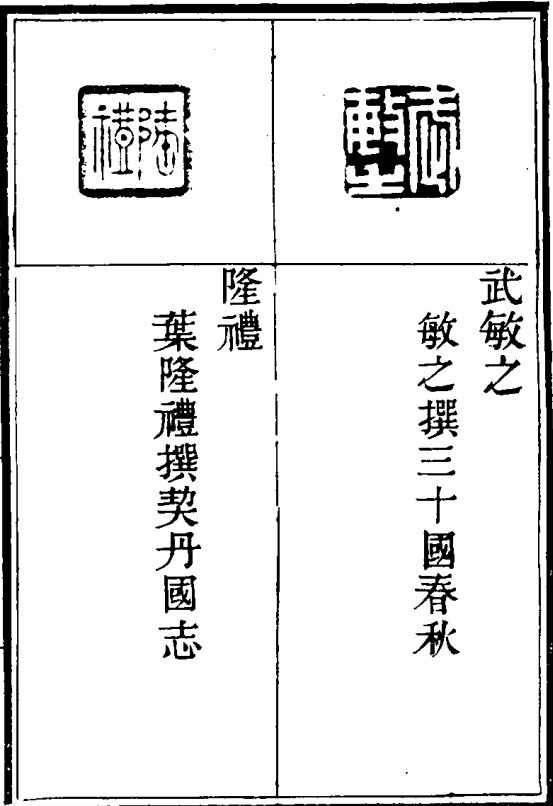 武敏之
武敏之
敏之撰三十國春秋
隆禮
隆禮
葉隆禮撰契丹國志